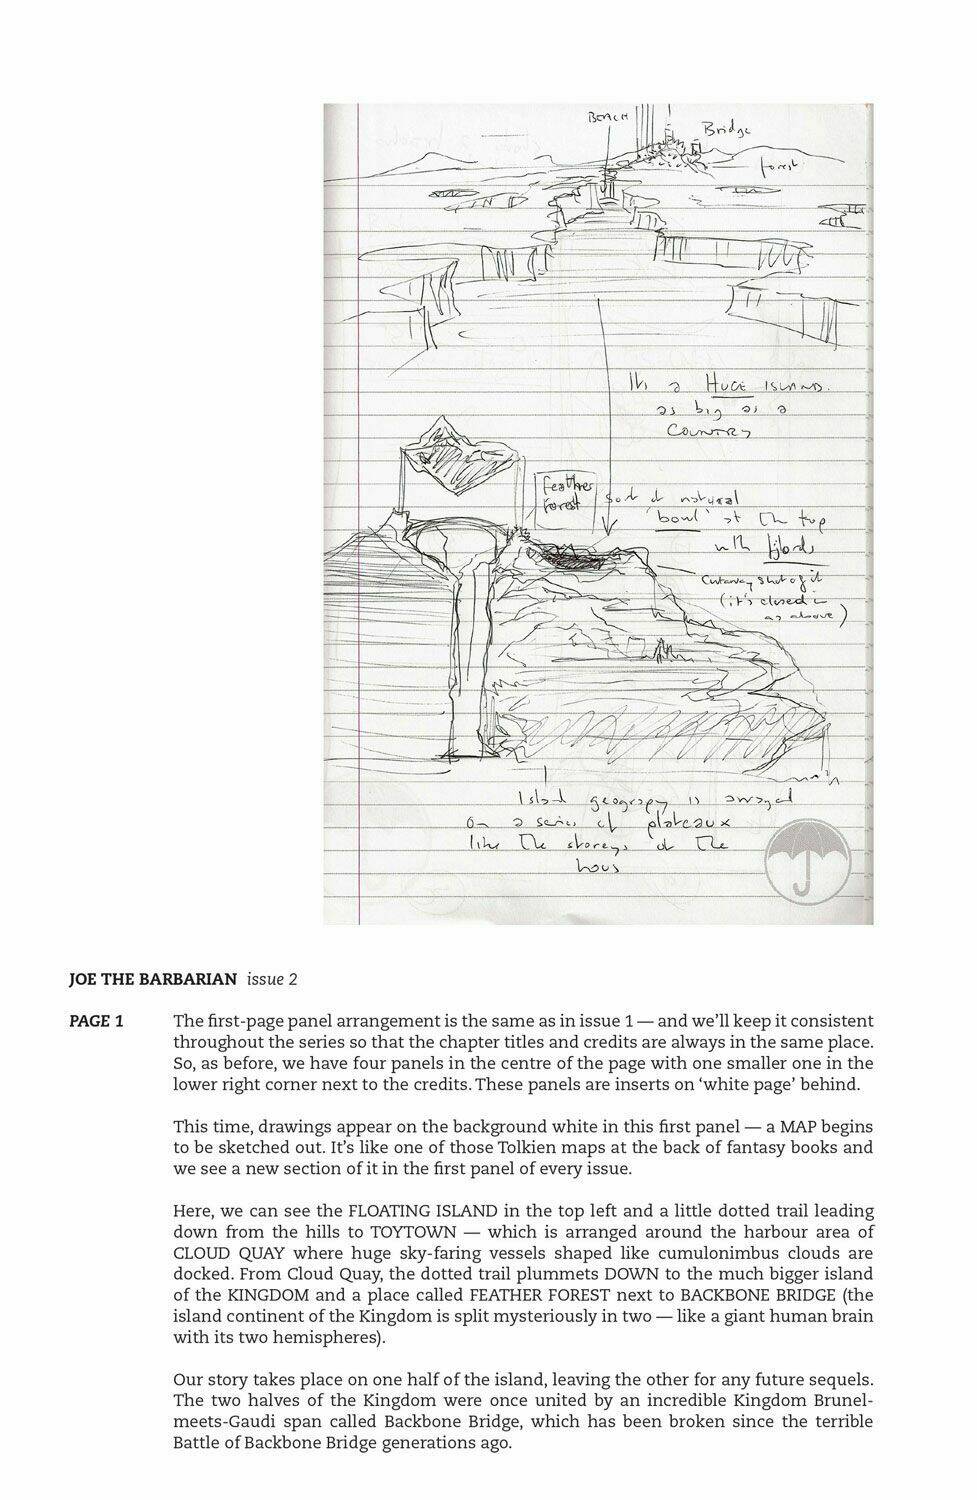 BEACH
Bridge
forest
It's a HUGE ISLAND.
as big as a
COUNTRY
Feather
Forest
Sort of natural
'bowl' at the top
with fjords
Cutaway shot of it
(it's closed in
as above)
Island geography is arranged
on a series of plateaux
like the storeys of the
hous
JOE THE BARBARIAN issue 2
PAGE 1
The first-page panel arrangement is the same as in issue 1 — and we'll keep it consistent
throughout the series so that the chapter titles and credits are always in the same place.
So, as before, we have four panels in the centre of the page with one smaller one in the
lower right corner next to the credits. These panels are inserts on 'white page' behind.
This time, drawings appear on the background white in this first panel — a MAP begins
to be sketched out. It's like one of those Tolkien maps at the back of fantasy books and
we see a new section of it in the first panel of every issue.
Here, we can see the FLOATING ISLAND in the top left and a little dotted trail leading
down from the hills to TOYTOWN — which is arranged around the harbour area of
CLOUD QUAY where huge sky-faring vessels shaped like cumulonimbus clouds are
docked. From Cloud Quay, the dotted trail plummets DOWN to the much bigger island
of the KINGDOM and a place called FEATHER FOREST next to BACKBONE BRIDGE (the
island continent of the Kingdom is split mysteriously in two — like a giant human brain
with its two hemispheres).
Our story takes place on one half of the island, leaving the other for any future sequels.
The two halves of the Kingdom were once united by an incredible Kingdom Brunel-
meets-Gaudi span called Backbone Bridge, which has been broken since the terrible
Battle of Backbone Bridge generations ago.